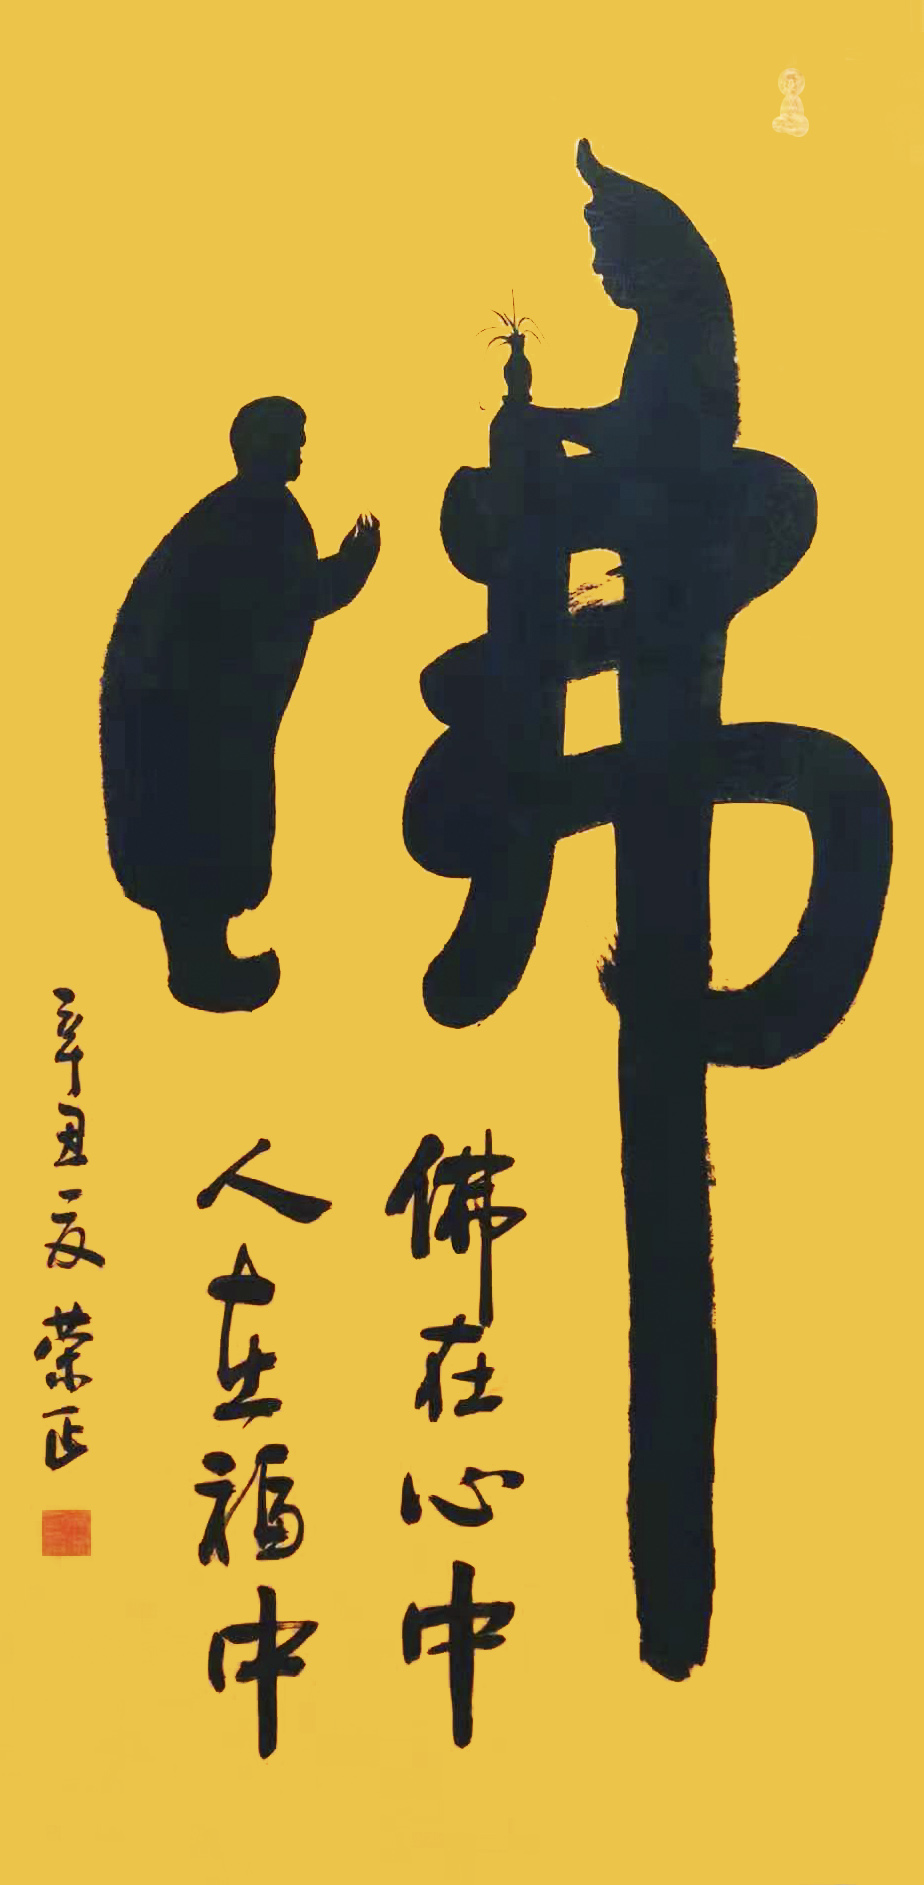 佛
佛在心中
人在福中
辛丑夏 荣正